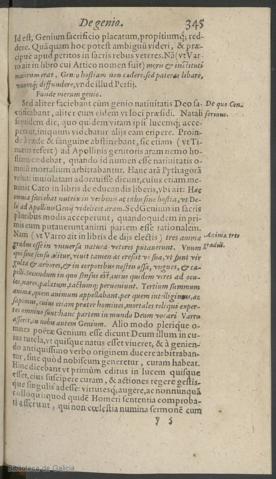 De genio. 345
Id est, Genium sacrificio placatum, propitiumq́; red-
dere. Quàm hoc potest ambiguū videri, & præ-
cipuè apud peritos in sacris rebus veteres. Nã (vt Var-
ro ait in libro cui Attico nomen fuit) more & instituto
maiorum erat, Genio hostiam non cædere, sed pateras libare,
diffundere, vnde illud Persij.
Funde merum genio.
Sed aliter faciebant cùm genio natiuitatis Deo sa-
crificabant, aliter cùm eidem vt loci præsidi. Natali
siquidem die, quo qui dem vitam ipsi lucemq́; acce-
perant, iniquum videbatur alijs eam eripere. Proin-
de cæde & sanguine abstinebant, sic etiam (vt Ti-
mæus refert) ad Apollinis genitoris aram nemo ho-
stiam cædebat, quando id numen esse natiuitatis o-
mniū mortalium arbitrabantur. Hanc arã Pythagorā
veluti inuiolatam adorauisse dicunt, cuius etiam me-
minit Cato in libris de educandis liberis, vbi ait: Hæc
omnia faciebat nutrix in verbenis ac tubis sine hostia, vt De-
li ad Apollinis Genij videri est aram. Sed Genium in sacris
pluribus modis acceperunt, quandoquidem in pri-
mis eum putauerunt animi partem esse rationalem,
Nam (vt Varro ait in libris de dijs electis) tres animæ
gradus esse in vniuersa natura veteres putauerunt. Vnum
quo sine sensu alitur, viuit tamen ac crescit vt sua, vt sunt vir
gulta & arbores, & in corporibus nostris ossa, vngues, & ca-
pilli. secundum in quo sensus est, cuius quidem vires ad ocu-
los, nares, palatum, tactumq́; peruenirent. Tertium summum
animæ, quem animum appellabant, per quem intelligimus, ac
sapimus,
in mundo Deum vocari Varro
asserit, in nobis autem Genium. Alio modo plerique o-
mnes poëtæ Genium esse dicunt Deum illum in cu-
ius tutela, vt quisque natus esset viueret, & à genien-
do antiquissimo verbo originem ducere arbitraban-
tur, siue quòd nobiscum generetur, curam habeat.
Hinc dicebant vt primùm editus in lucem quisque
esset, eius suscipere curam, & actiones regere gestia-
que singulis adesse: virtutesq́; augere, ac nonnunquā
colloqui: quod quidē Homeri sententia comproba-
ti asserunt, qui non cœlestia numina sermonē cum
Y 5
De quo Cen-
sorinus.
Animæ tres
gradus.
Biblioteca de Galicia